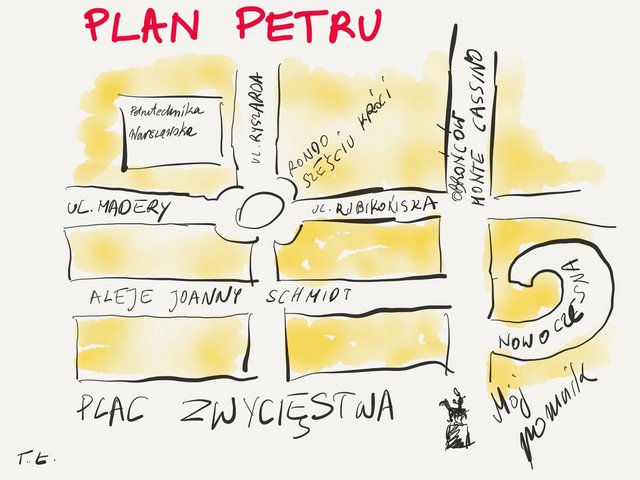 PLAN PETRU
Politechnika
Warszawska
UL. RYSZARDA
RONDO
SZEŚCIU KRÓLI
OBROŃCÓW
MONTE CASSINO
UL. MADERY
UL. RUBIKOŃSKA
ALEJE JOANNY SCHMIDT
NOWOCZESNA
PLAC ZWYCIĘSTWA
Mój
pomnik
T.E.